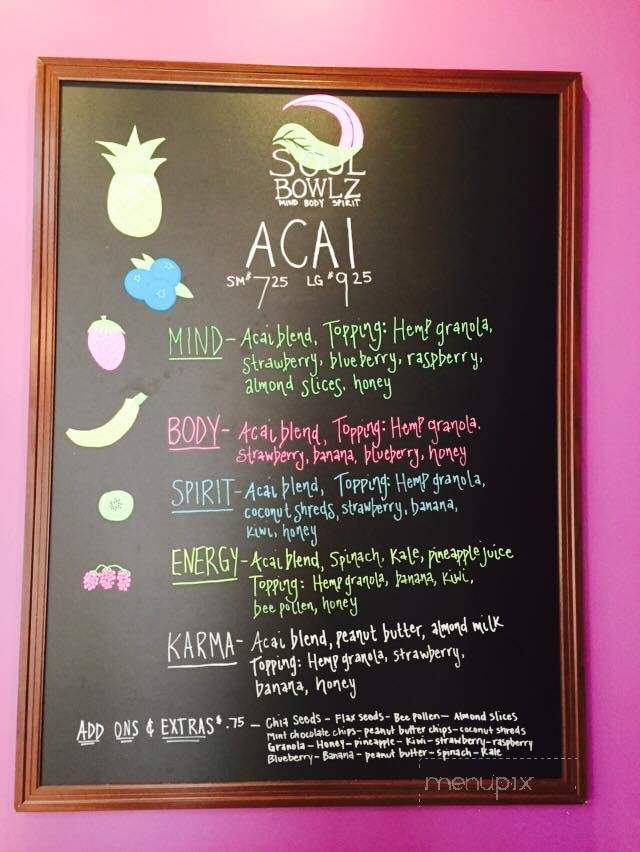 SOUL
BOWLZ
MIND BODY SPIRIT
ACAI
SM $7 25 LG $9 25
MIND - Acai blend, Topping: Hemp granola,
strawberry, blueberry, raspberry,
almond slices, honey
BODY - Acai blend, Topping: Hemp granola.
strawberry, banana, blueberry, honey
SPIRIT - Acai blend, Topping: Hemp granola,
coconut shreds, strawberry, banana,
kiwi, honey
ENERGY - Acai blend, Spinach, Kale, pineapple juice
Topping: Hemp granola, banana, kiwi,
bee pollen, honey
KARMA - Acai blend, peanut butter, almond milk
Topping: Hemp granola, strawberry,
banana, honey
ADD ONS & EXTRAS $.75 - Chia Seeds - Flax seeds - Bee Pollen - Almond slices
Mint chocolate chips - peanut butter chips - coconut shreds
Granola - Honey - pineapple - Kiwi - strawberry - raspberry
Blueberry - Banana - peanut butter - spinach - Kale
menupix